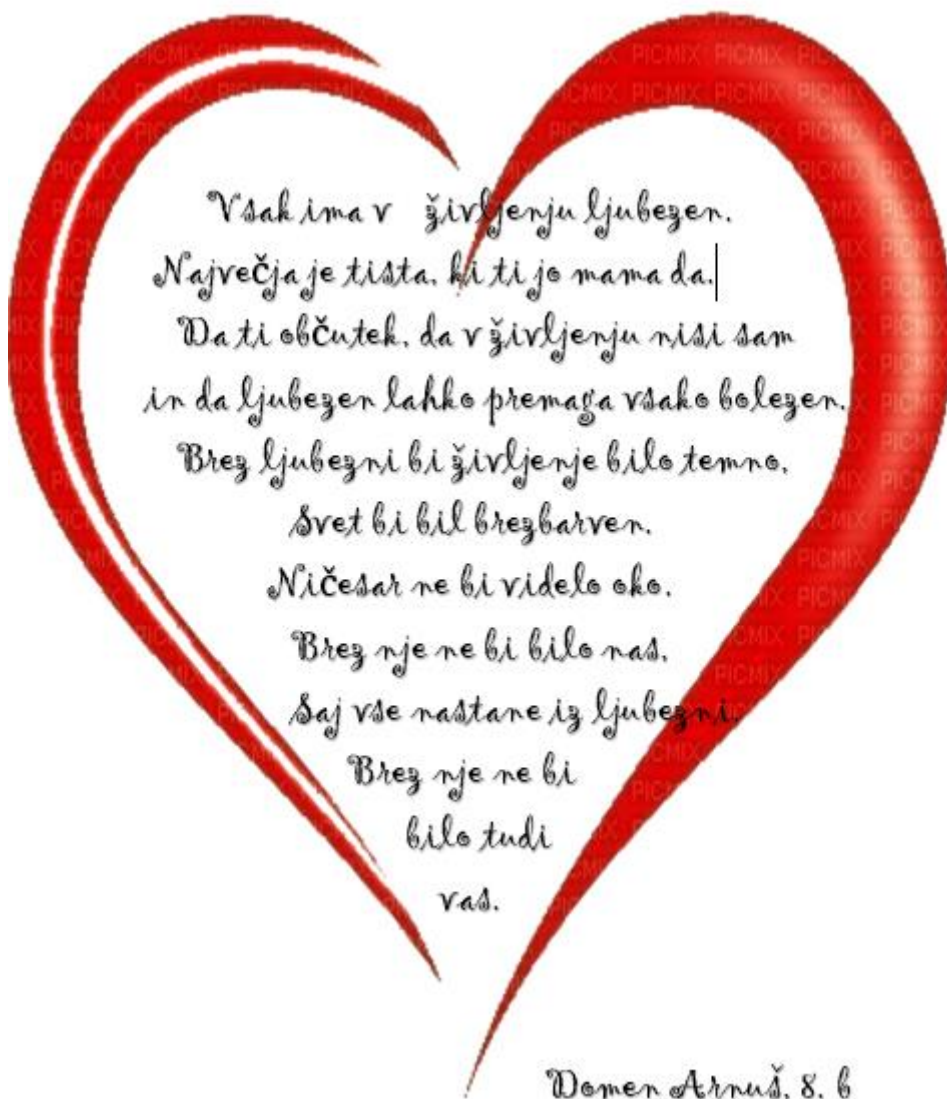 Vsak ima v življenju ljubezen.
Največja je tista, ki ti jo mama da.
Da ti občutek, da v življenju nisi sam
in da ljubezen lahko premaga vsako bolezen.
Brez ljubezni bi življenje bilo temno,
Svet bi bil brezbarven.
Ničesar ne bi videlo oko.
Brez nje ne bi bilo nas,
Saj vse nastane iz ljubezni.
Brez nje ne bi
bilo tudi
vas.
Domen Arnuš, 8. b